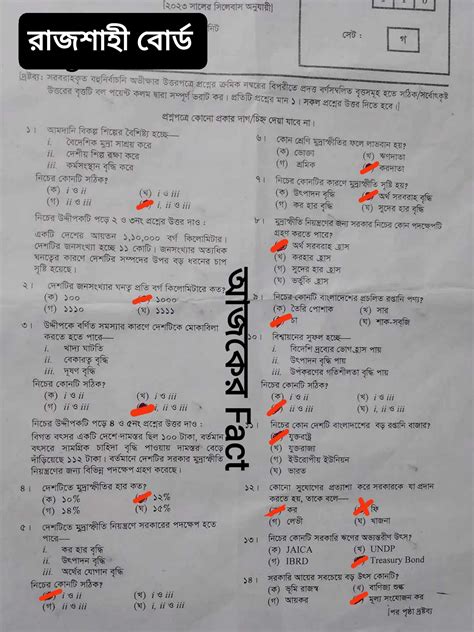 রাজশাহী বোর্ড
[২০২৩ সালের সিলেবাস অনুযায়ী]
সেট :
গ
[দ্রষ্টব্য: সরবরাহকৃত বহুনির্বাচনি অভীক্ষার উত্তরপত্রে প্রশ্নের ক্রমিক নম্বরের বিপরীতে প্রদত্ত বর্ণসম্বলিত বৃত্তসমূহ হতে সঠিক/সর্বোৎকৃষ্ট
উত্তরের বৃত্তটি বল পয়েন্ট কলম দ্বারা সম্পূর্ণ ভরাট কর। প্রতিটি প্রশ্নের মান ১। সকল প্রশ্নের উত্তর দিতে হবে।]
প্রশ্নপত্রে কোনো প্রকার দাগ/চিহ্ন দেয়া যাবে না।
১। আমদানি বিকল্প শিল্পের বৈশিষ্ট্য হচ্ছে—
i. বৈদেশিক মুদ্রা সাশ্রয় করে
ii. দেশীয় শিল্প রক্ষা করে
iii. কর্মসংস্থান বৃদ্ধি করে
নিচের কোনটি সঠিক?
(ক) i ও ii (খ) i ও iii
(গ) ii ও iii i, ii ও iii
নিচের উদ্দীপকটি পড়ে ২ ও ৩নং প্রশ্নের উত্তর দাও :
একটি দেশের আয়তন ১,১০,০০০ বর্গ কিলোমিটার।
দেশটির জনসংখ্যা হচ্ছে ১১ কোটি। জনসংখ্যার অত্যধিক
ঘনত্বের কারণে দেশটির সম্পদের উপর বড় ধরনের চাপ
সৃষ্টি হয়েছে।
২। দেশটির জনসংখ্যার ঘনত্ব প্রতি বর্গ কিলোমিটারে কত?
(ক) ১০০ ১০০০
(গ) ১১১০ (ঘ) ১১১১
৩। উদ্দীপকে বর্ণিত সমস্যার কারণে দেশটিকে মোকাবিলা
করতে হতে পারে—
i. খাদ্য ঘাটতি
ii. বেকারত্ব বৃদ্ধি
iii. দূষণ বৃদ্ধি
নিচের কোনটি সঠিক?
(ক) i ও ii (খ) i ও iii
(গ) ii ও iii i, ii ও iii
নিচের উদ্দীপকটি পড়ে ৪ ও ৫নং প্রশ্নের উত্তর দাও :
বিগত বৎসর একটি দেশে দামস্তর ছিল ১০০ টাকা, বর্তমান
বৎসরে সামগ্রিক চাহিদা বৃদ্ধি পাওয়ায় দামস্তর বেড়ে
দাঁড়িয়েছে ১১২ টাকা। বর্তমানে দেশটির সরকার মুদ্রাস্ফীতি
নিয়ন্ত্রণের জন্য বিভিন্ন পদক্ষেপ গ্রহণ করেছে।
৪। দেশটিতে মুদ্রাস্ফীতির হার কত?
(ক) ১০% ১২%
(গ) ১৪% (ঘ) ১৫%
৫। দেশটিতে মুদ্রাস্ফীতি নিয়ন্ত্রণে সরকারের পদক্ষেপ হতে
পারে—
i. কর হার বৃদ্ধি
ii. উৎপাদন বৃদ্ধি
iii. অর্থের যোগান বৃদ্ধি
নিচের কোনটি সঠিক?
i ও ii (খ) i ও iii
(গ) ii ও iii (ঘ) i, ii ও iii
৬। কোন শ্রেণি মুদ্রাস্ফীতির ফলে লাভবান হয়?
(ক) ভোক্তা (খ) ঋণদাতা
(গ) শ্রমিক করদাতা
৭। নিচের কোনটির কারণে মুদ্রাস্ফীতি সৃষ্টি হয়?
(ক) উৎপাদন বৃদ্ধি অর্থ সরবরাহ বৃদ্ধি
(গ) কর হার বৃদ্ধি (ঘ) সুদের হার বৃদ্ধি
৮। মুদ্রাস্ফীতি নিয়ন্ত্রণের জন্য সরকার নিচের কোন পদক্ষেপটি
গ্রহণ করতে পারে?
অর্থ সরবরাহ হ্রাস
(খ) করহার হ্রাস
(গ) সুদের হার হ্রাস
(ঘ) ভর্তুকি হ্রাস
৯। নিচের কোনটি বাংলাদেশের প্রচলিত রপ্তানি পণ্য?
(ক) তৈরি পোশাক (খ) সার
চা (ঘ) শাক-সবজি
১০। বিশ্বায়নের সুফল হচ্ছে—
i. বিদেশি দ্রব্যের ভোগ হ্রাস পায়
ii. উৎপাদন বৃদ্ধি পায়
iii. উপকরণের গতিশীলতা বৃদ্ধি পায়
নিচের কোনটি সঠিক?
(ক) i ও ii (খ) i ও iii
ii ও iii (ঘ) i, ii ও iii
১১। কোন দেশটি বাংলাদেশের বড় রপ্তানি বাজার?
যুক্তরাষ্ট্র
(খ) যুক্তরাজ্য
(গ) ইউরোপীয় ইউনিয়ন
(ঘ) ভারত
১২। কোনো সুযোগের প্রত্যাশা করে সরকারকে যা প্রদান
করতে হয়, তাকে বলে—
কর ফি
(গ) লেভী (ঘ) খাজনা
১৩। কোনটি সরকারি ঋণের অভ্যন্তরীণ উৎস?
(ক) JAICA (খ) UNDP
(গ) IBRD Treasury Bond
১৪। সরকারি আয়ের সবচেয়ে বড় উৎস কোনটি?
(ক) ভূমি রাজস্ব (খ) বাণিজ্য শুল্ক
(গ) আয়কর মূল্য সংযোজন কর
[পর পৃষ্ঠা দ্রষ্টব্য
আজকের Fact